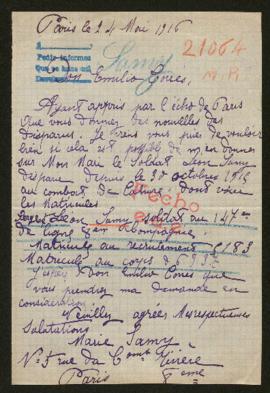 Paris le 24 Mai 1916
Pedir informes
Samy
21064
M. P.
Don Emilio Cores,
Ayant appris par l'écho de Paris
que vous donnez des nouvelles des
disparus. Je viens vous prier de vouloir
bien si cela est possible de m'en donner
sur Mon Mari le Soldat Léon Samy
disparu depuis le 30 octobre 1915
au combat de Tahure, dont voici
les Matricules
Léon Samy soldat au 147eme
de ligne Compagnie
Matricule au recrutement 6183
Matricule au corps
J'espère don Emilio Cores que
vous prendrez ma demande en
considération
Veuillez agréer Mes respectueuses
Salutations
Marie Samy
No 5 rue du Comt Rivière
Paris 8eme